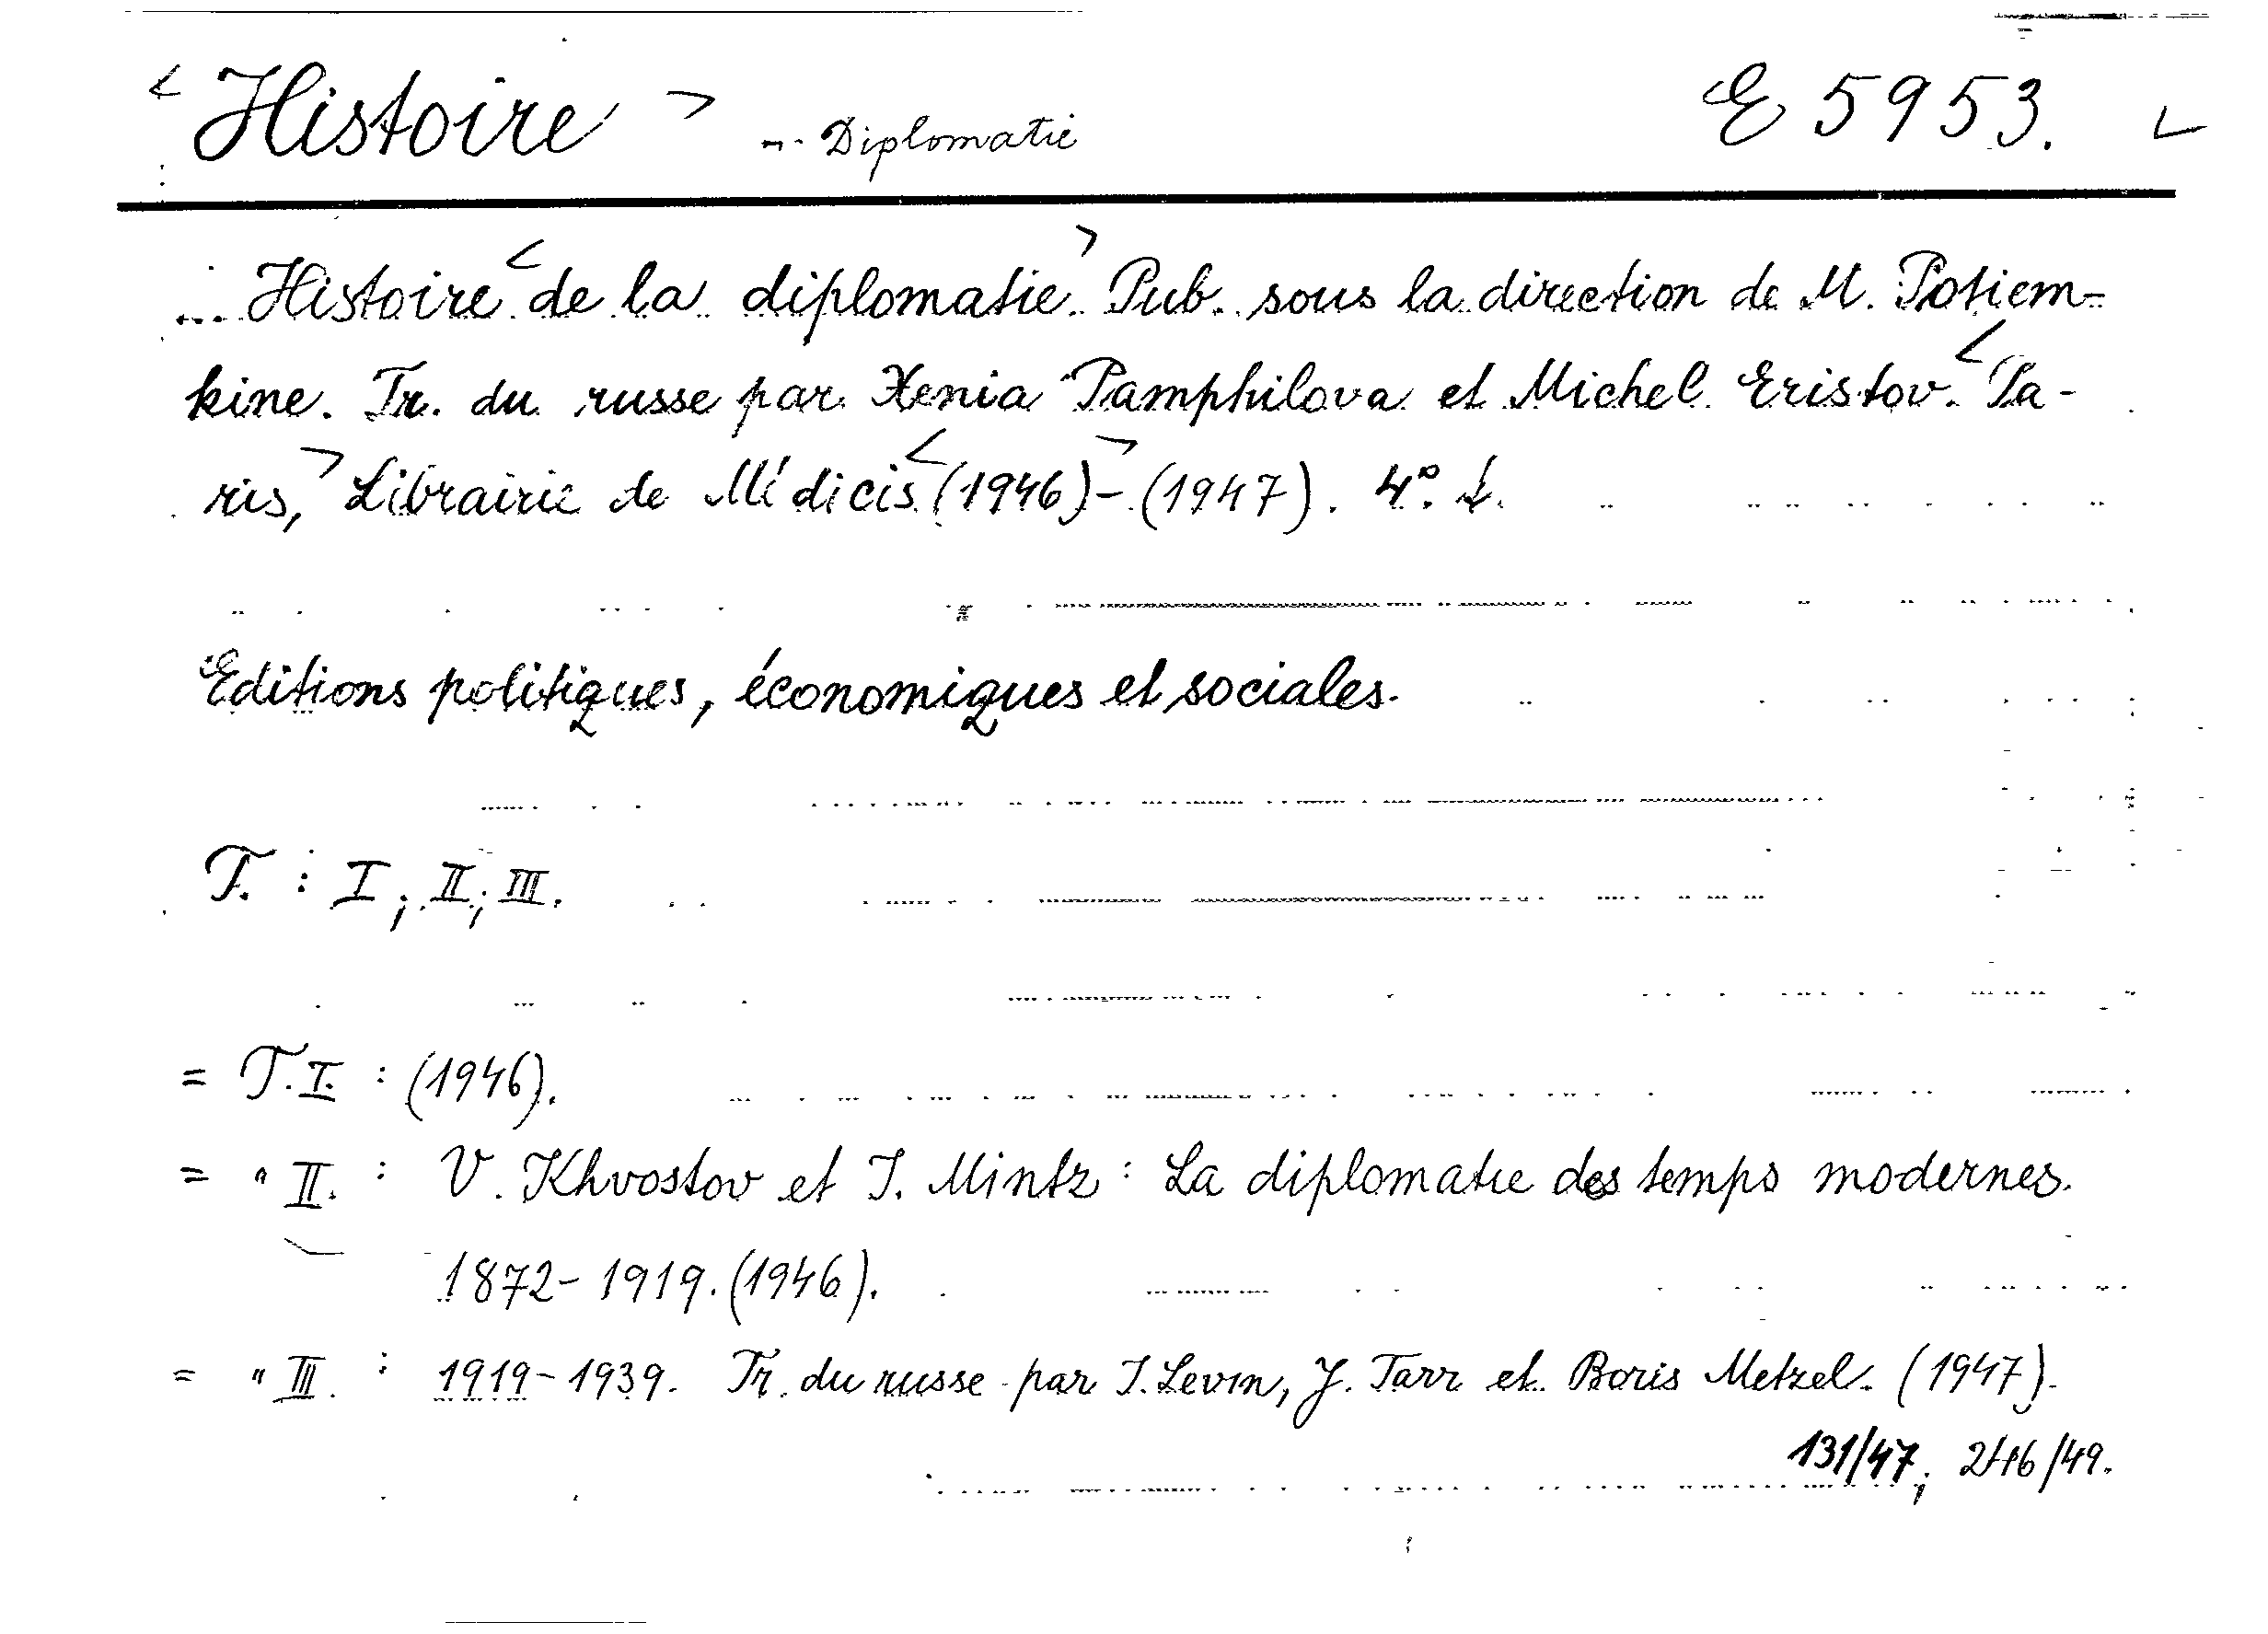 < Histoire > -.. Diplomatie E 5953.
... Histoire < de la diplomatie. > Pub. sous la direction de M. Potiem-
kine. Tr. du russe par Xenia Pamphilova et Michel Eristov. < Pa-
ris, > Librairie de Médicis < (1946) > - (1947). 4°.
Editions politiques, économiques et sociales.
T. : I ; II ; III.
= T. I. : (1946).
= " II. : V. Khvostov et I. Mintz : La diplomatie des temps modernes.
1872-1919. (1946).
= " III. : 1919-1939. Tr. du russe par I. Levin, J. Tarr et Boris Metzel. (1947).
131/47;